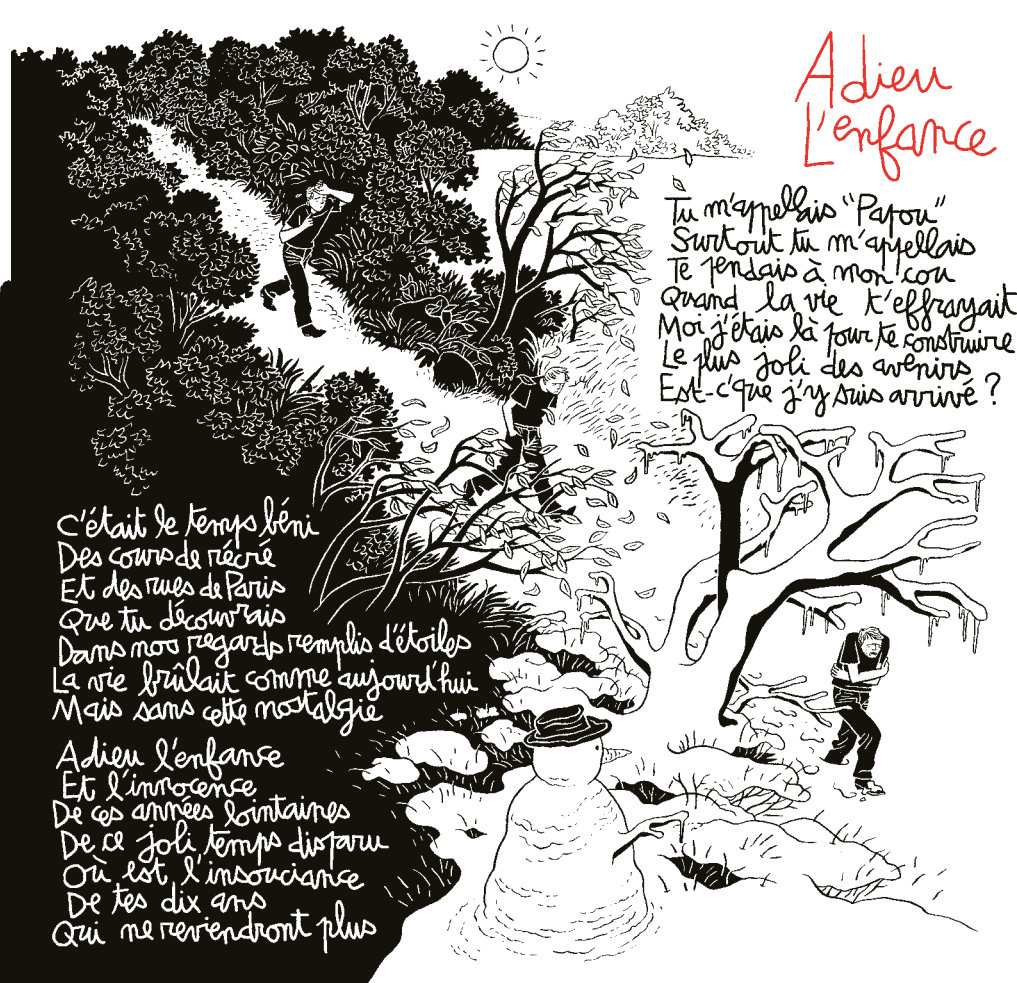 Adieu
L'enfance
Tu m'appellais "Papou"
Surtout tu m'appellais
Te pendais à mon cou
Quand la vie t'effrayait
Moi j'étais là pour te construire
Le plus joli des avenirs
Est-c'que j'y suis arrivé ?
C'était le temps béni
Des cours de récré
Et des rues de Paris
Que tu découvrais
Dans nos regards remplis d'étoiles
La vie brûlait comme aujourd'hui
Mais sans cette nostalgie
Adieu l'enfance
Et l'innocence
De ces années lointaines
De ce joli temps disparu
Où est l'insouciance
De tes dix ans
Qui ne reviendront plus